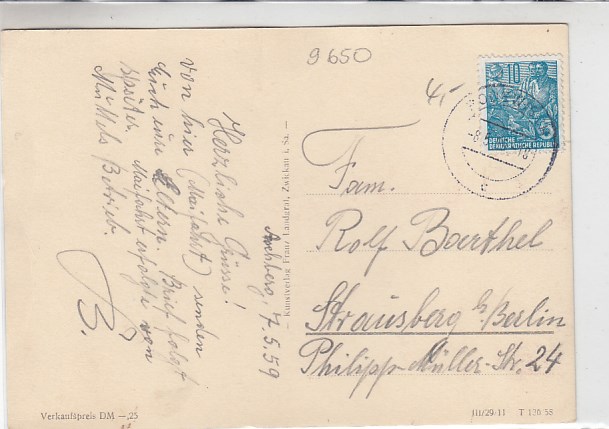 9650
4,-
10
DEUTSCHE
DEMOKRATISCHE REPUBLIK
5
Herzliche Grüsse!
von hier (Maifahrt) senden
Euch eure Eltern. Brief folgt
später. Maifahrt erfolgte von
Muttels Betrieb.
B.
7.5.59
Kunstverlag Franz Landgraf, Zwickau i. Sa.
Fam.
Rolf Barthel
Strausberg b/Berlin
Philipp-Müller-Str. 24
Verkaufspreis DM —,25
III/29/11 T 120 58